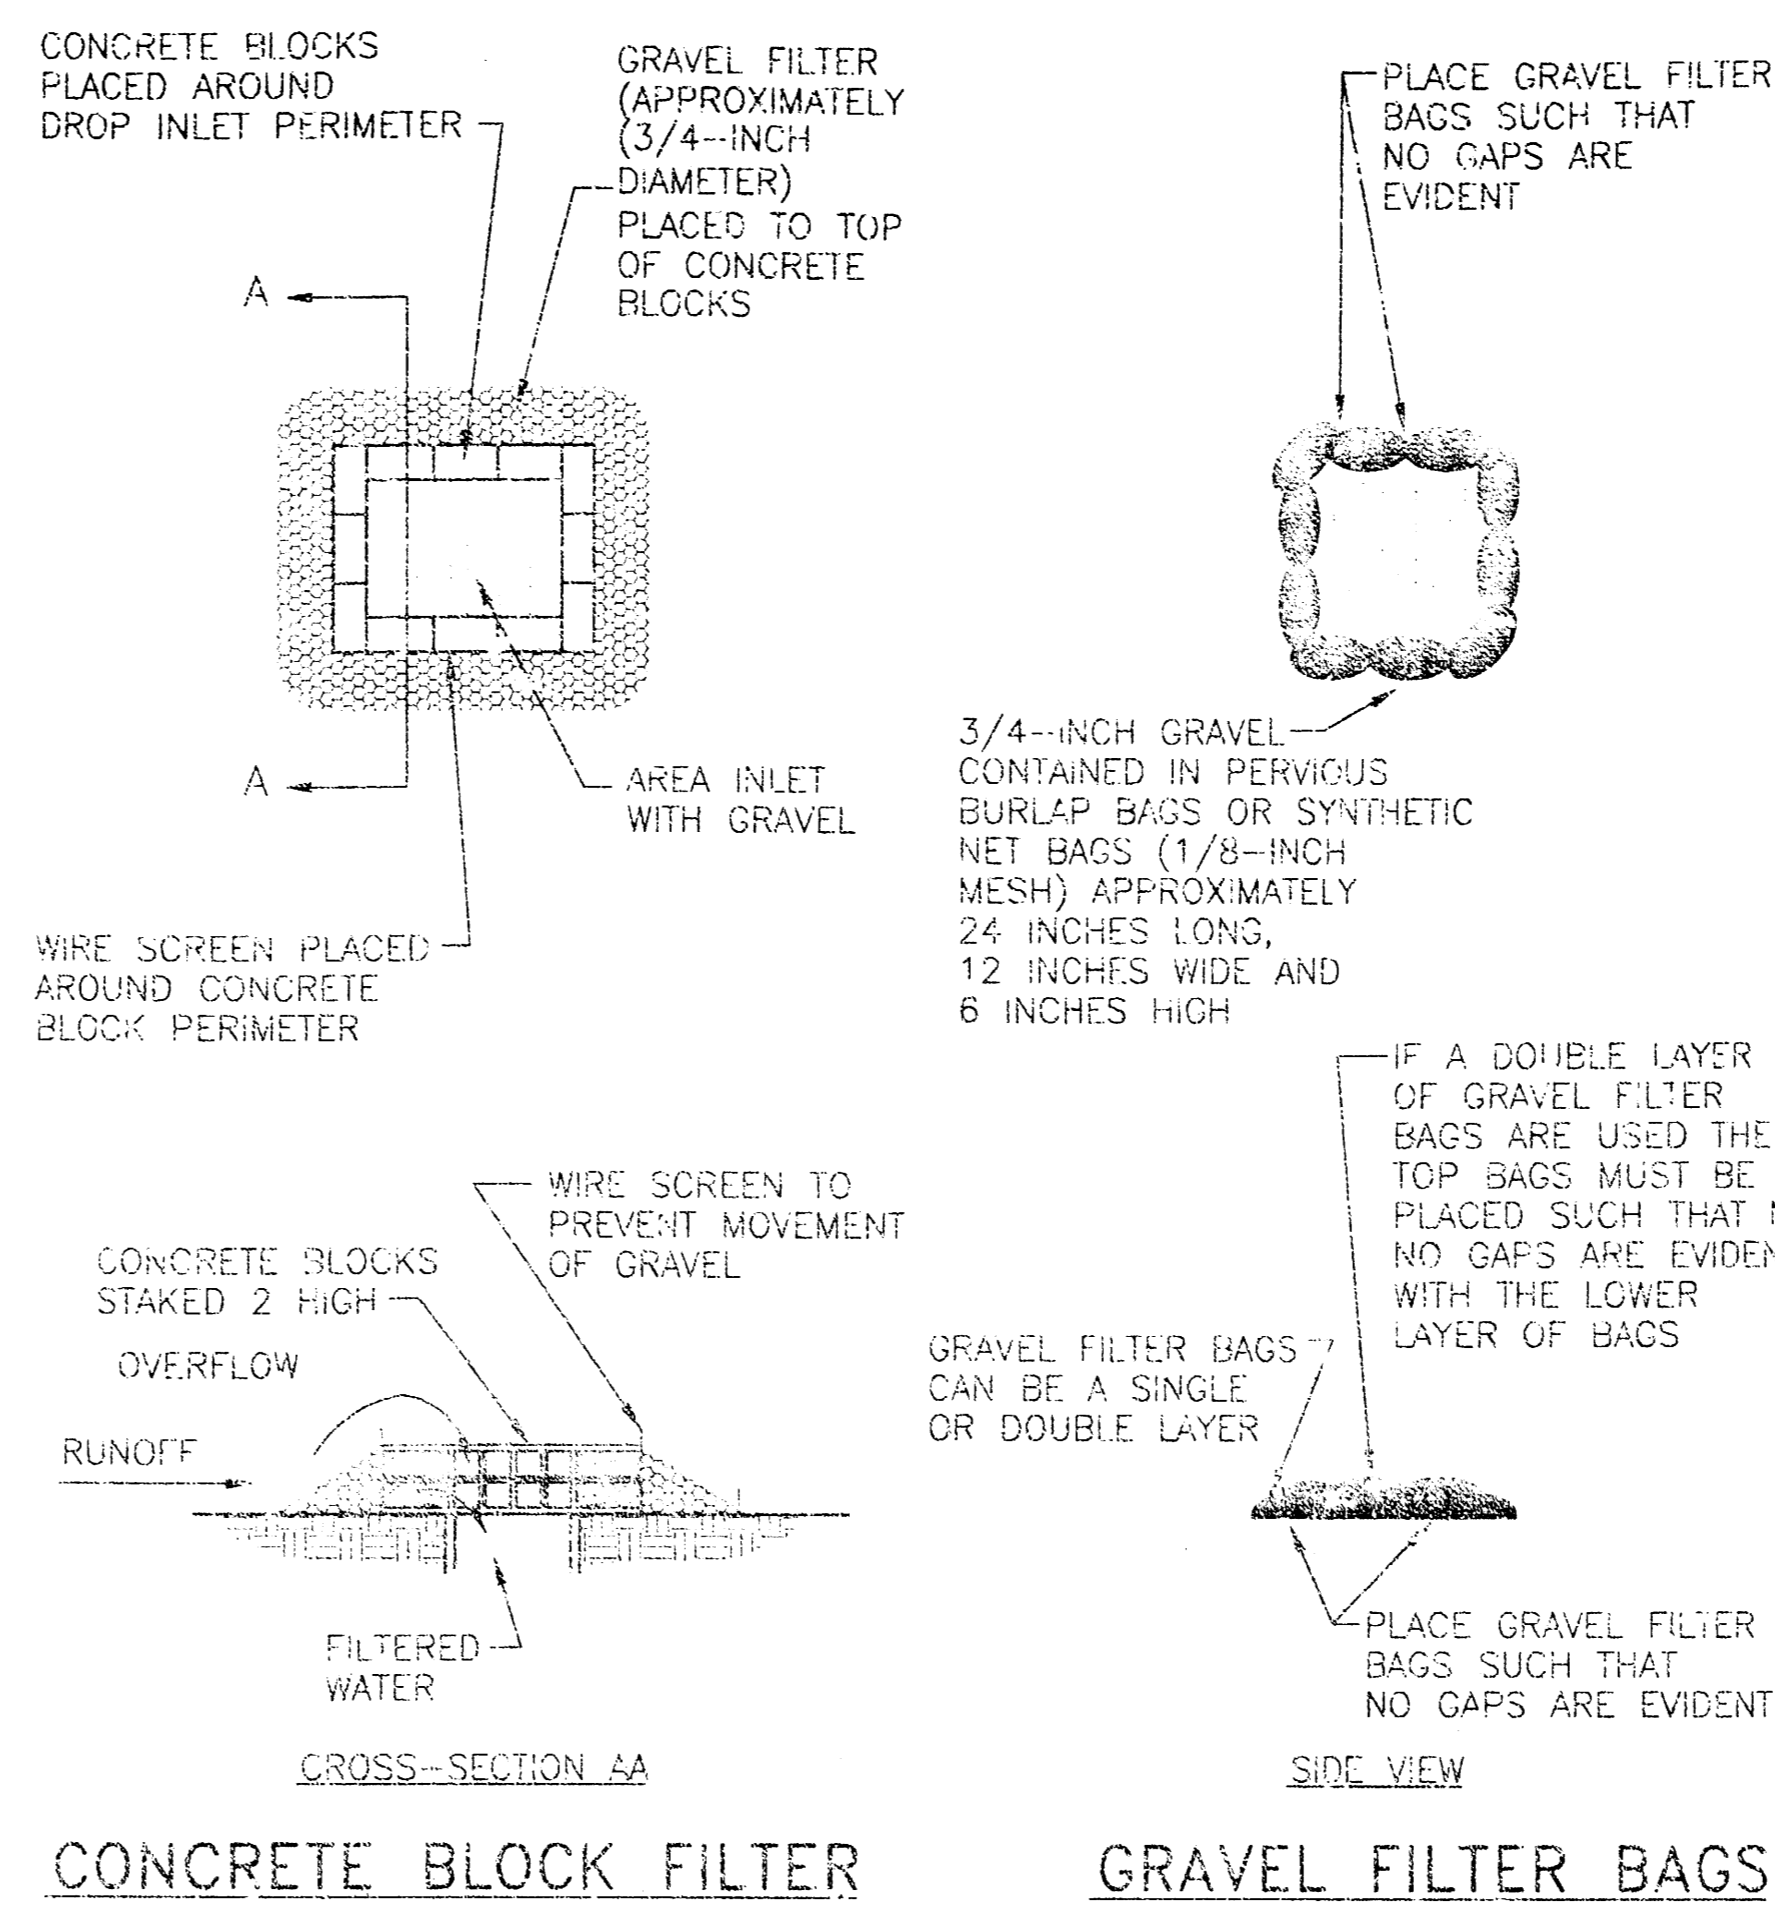 CONCRETE BLOCKS
PLACED AROUND
DROP INLET PERIMETER
GRAVEL FILTER
(APPROXIMATELY
(3/4-INCH
DIAMETER)
PLACED TO TOP
OF CONCRETE
BLOCKS
A
A
AREA INLET
WITH GRAVEL
WIRE SCREEN PLACED
AROUND CONCRETE
BLOCK PERIMETER
WIRE SCREEN TO
PREVENT MOVEMENT
OF GRAVEL
CONCRETE BLOCKS
STAKED 2 HIGH
OVERFLOW
RUNOFF
FILTERED
WATER
CROSS-SECTION AA
CONCRETE BLOCK FILTER
PLACE GRAVEL FILTER
BAGS SUCH THAT
NO GAPS ARE
EVIDENT
3/4-INCH GRAVEL
CONTAINED IN PERVIOUS
BURLAP BAGS OR SYNTHETIC
NET BAGS (1/8-INCH
MESH) APPROXIMATELY
24 INCHES LONG,
12 INCHES WIDE AND
6 INCHES HIGH
IF A DOUBLE LAYER
OF GRAVEL FILTER
BAGS ARE USED THE
TOP BAGS MUST BE
PLACED SUCH THAT
NO GAPS ARE EVIDEN
WITH THE LOWER
LAYER OF BAGS
GRAVEL FILTER BAGS
CAN BE A SINGLE
OR DOUBLE LAYER
PLACE GRAVEL FILTER
BAGS SUCH THAT
NO GAPS ARE EVIDENT
SIDE VIEW
GRAVEL FILTER BAGS